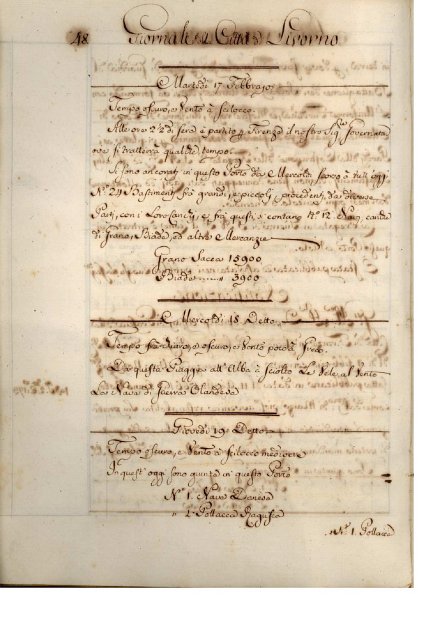 48 Giornale di Città di Livorno
Martedì 17 Febbraio
Tempo oscuro, e Vento à scilocco.
Alle ore 22 di sera è partito p Firenze il nostro Sigr Governatre
ove si tratterrà qualche tempo.
Si sono ancorati in questo Porto da Mercoledì à tutt' oggi
N.o 24 Bastimenti frà grandi, e piccoli, procedenti da diverse
Parti, con i Loro e frà questi si contano N.o 12 Navi cariche
di Grano, Biade, ed altre Mercanzie
Grano Sacca 15900
Biade 3900
Mercoledì 18 Detto
Tempo frà chiaro, e oscuro, e Vento poco
Da questa Piaggia all' Alba à sciolto Le Vele al Vento
La Nave di Guerra Olandese
Giovedì 19 Detto
Tempo oscuro, e Vento à scilocco mediocre
In quest' oggi sono giunte in questo Porto
N.o 1. Nave Danese
" 1. Pollacca Ragusea
" N.o 1. Pollacca